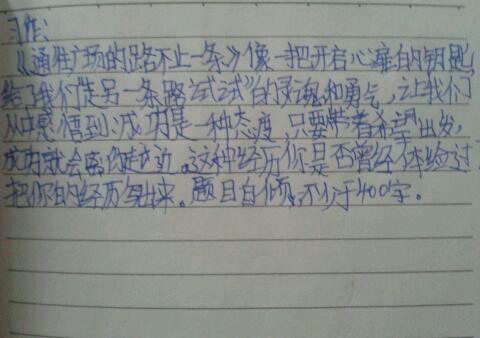 习作:
《通往广场的路不止一条》像一把开启心扉的钥匙,
给了我们“走另一条路试试”的灵魂和勇气,让我们
从中感悟到:成功是一种态度,只要带着希望出发,
成功就会离你越近。这种经历你是否曾经体验过
把你的经历写出来。题目自倾,不少于400字。